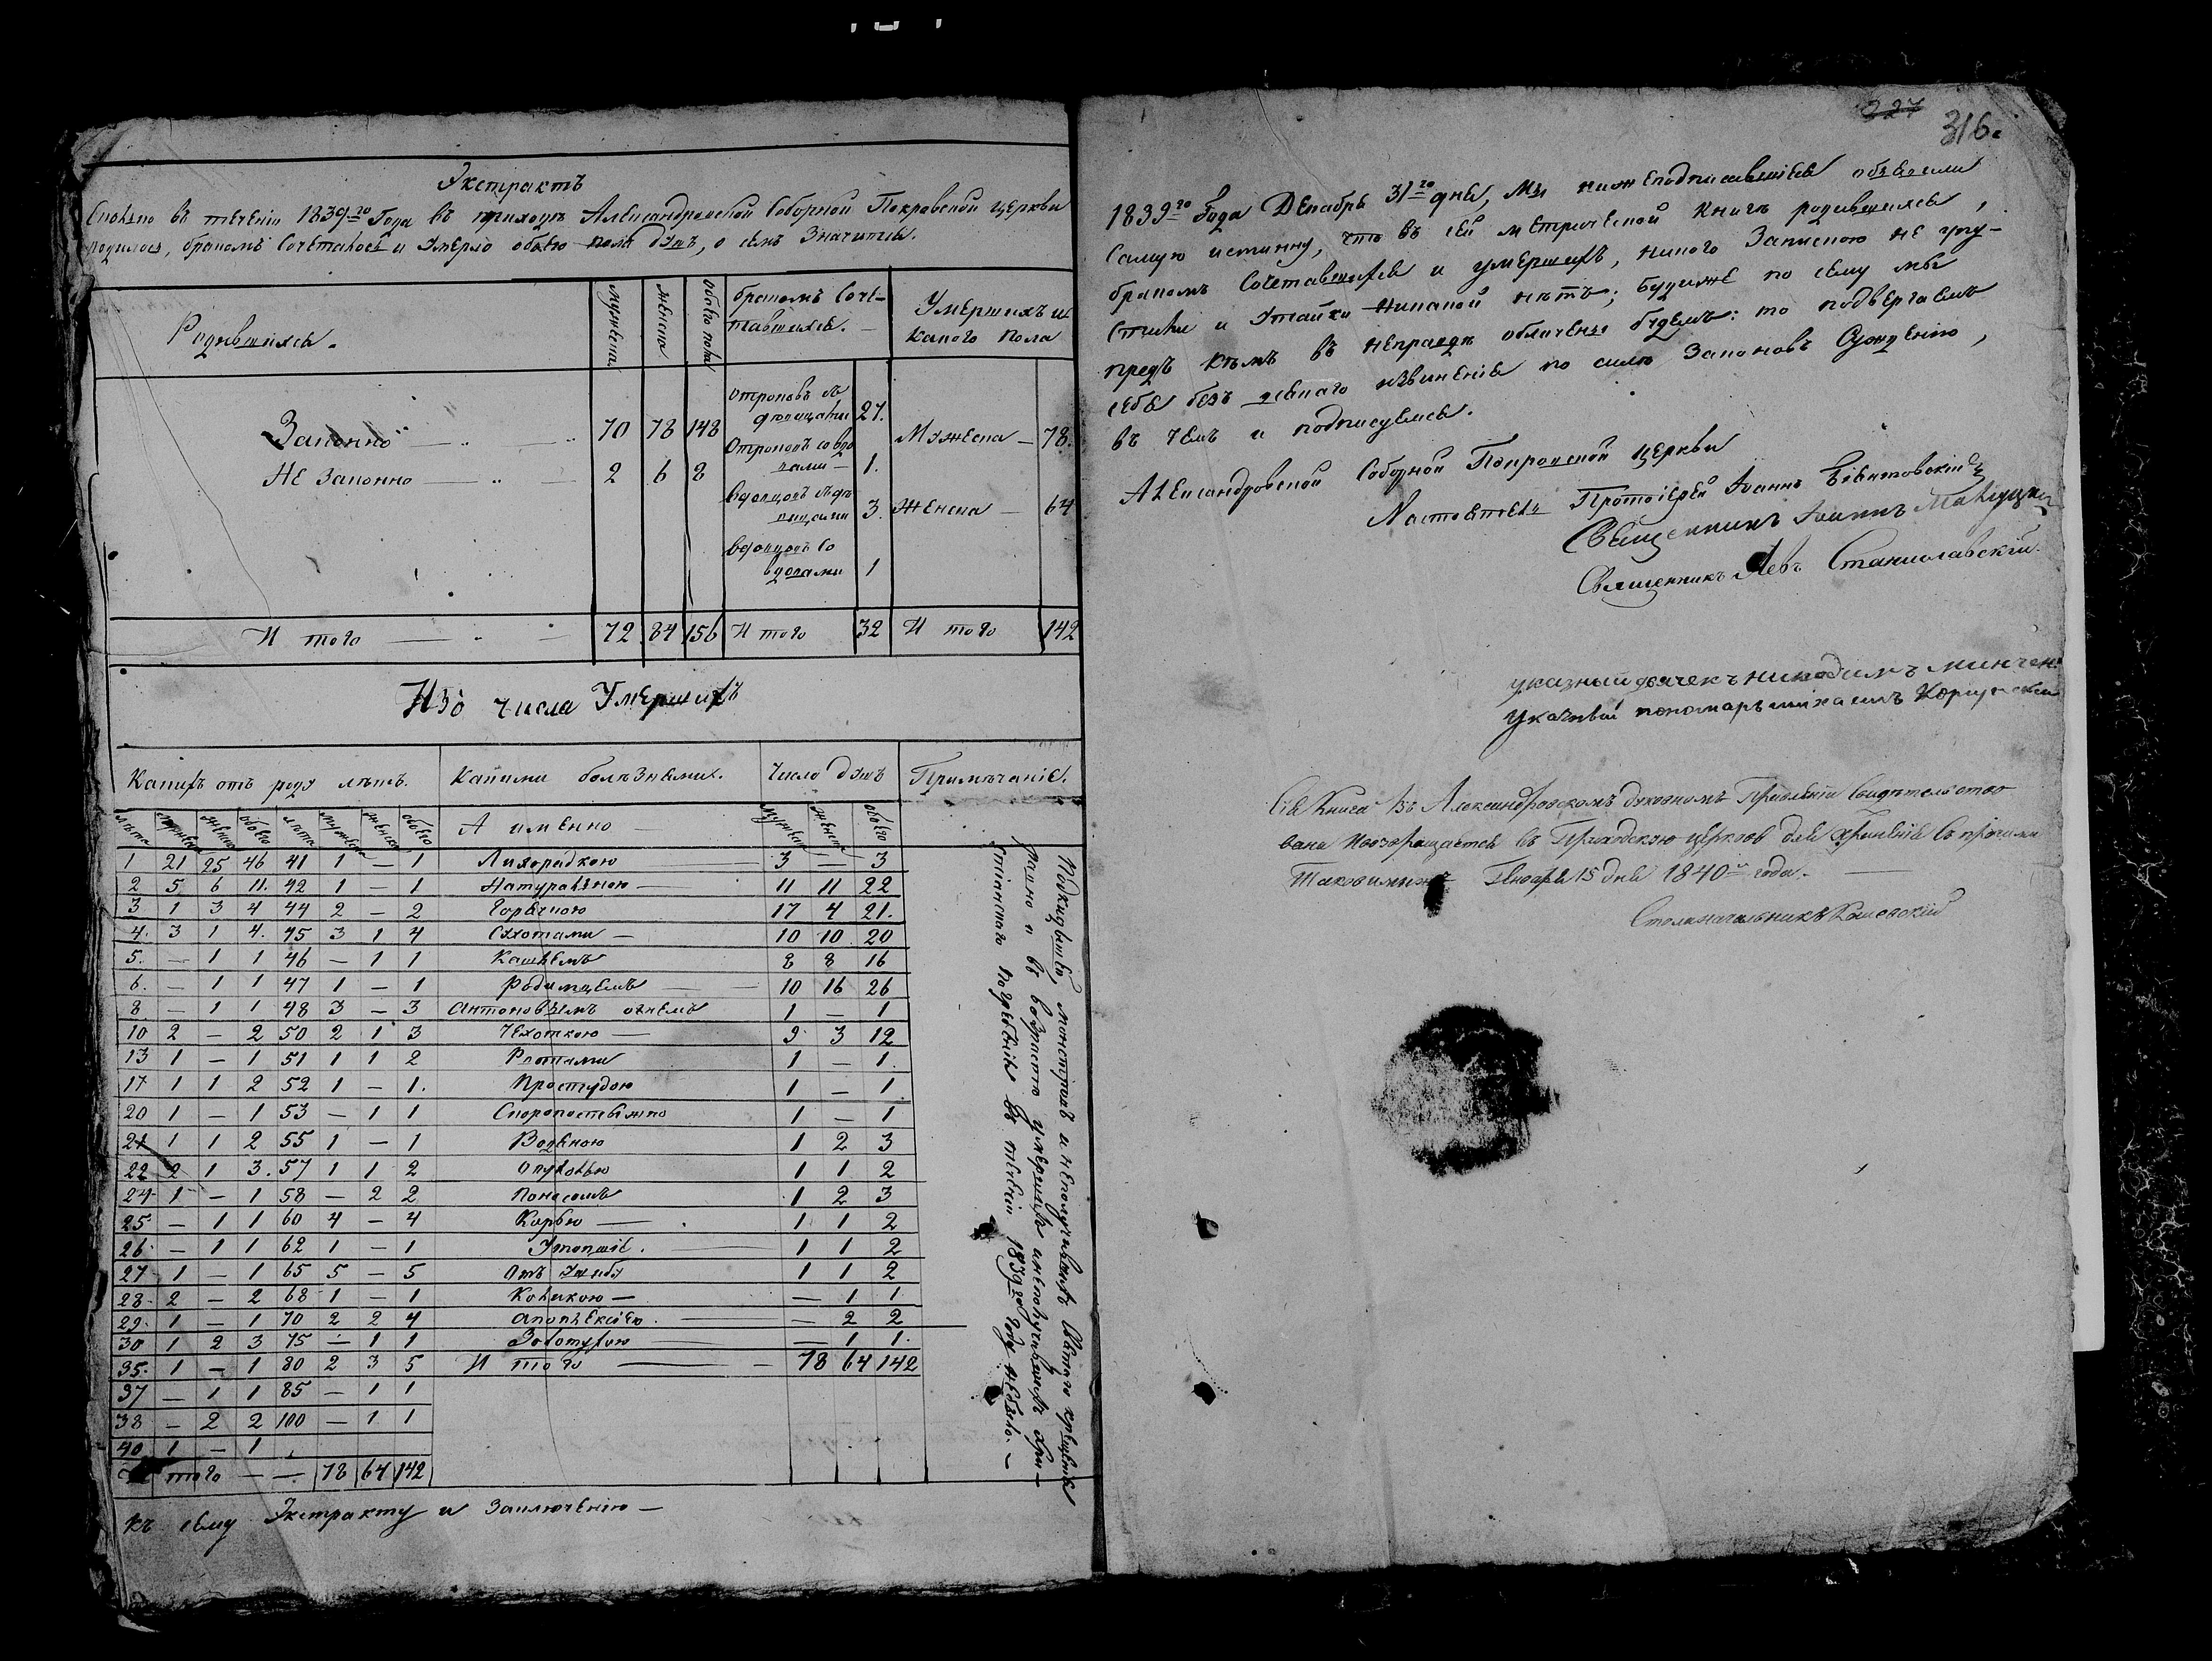 Экстрактъ
Сколько въ теченіи 1839го Года въ приходѣ Александровской Соборной Покровской церкви
родилось, бракомъ Сочеталось и Умерло обоего пола душъ, о семъ Значится.
Родившихся.
мужеска
женска
обоего пола
бракомъ Соче-
тавшихся.
Умершихъ и
какого пола
Законно 70 78 148
Не Законно 2 6 8
отроковъ съ
дѣвицами 27.
Отроковъ со вдо
вами 1.
вдовцовъ съ дѣ
вицами 3.
вдовцовъ со
вдовами 1
Мужеска 78.
Женска 64
И того 72 84 156 И того 32 И того 142
Изъ числа Умершихъ
Какихъ отъ роду лѣтъ. Какими болѣзньми. Число душъ Примѣчаніе.
лѣта мужеска женска обоего лѣта мужеска женска обоего А именно мужеска женска обоего
1 21 25 46 41 1 — 1 Лихорадкою 3 — 3
2 5 6 11. 42 1 — 1 Натуральною 11 11 22
3 1 3 4 44 2 — 2 Горячкою 17 4 21.
4. 3 1 4. 45 3 1 4 Сухотами 10 10 20
5. — 1 1 46 — 1 1 Кашлемъ 8 8 16
6. — 1 1 47 1 — 1 Родимцемъ 10 16 26
8 — 1 1 48 3 — 3 Антоновымъ огнемъ 1 — 1
10 2 — 2 50 2 1 3 Чехоткою 9 3 12
13 1 — 1 51 1 1 2 1 — 1
17 1 1 2 52 1 — 1. Простудою 1 — 1
20 1 — 1 53 — 1 1 Скоропостыжно 1 — 1
21 1 1 2 55 1 — 1 Водяною 1 2 3
22 2 1 3. 57 1 1 2 Опухолью 1 1 2
24 1 — 1 58 — 2 2 Поносомъ 1 2 3
25 — 1 1 60 4 — 4 Корью 1 1 2
26 — 1 1 62 1 — 1 Утопшіе. 1 1 2
27 1 — 1 65 5 — 5 Отъ Ушибу 1 1 2
28 2 — 2 68 1 — 1 Коликою — 1 1
29 1 — 1 70 2 2 4 апоплексіею — 2 2
30 1 2 3 75 — 1 1 Золотухою — 1 1.
35. 1 — 1 80 2 3 5 И того 78 64 142
37 — 1 1 85 — 1 1
38 — 2 2 100 — 1 1
40 1 — 1
И того — — 78 64 142
Подкидышей, монструмъ и неполучившихъ Святаго крещенія
равно и въ возрастѣ умершихъ и неполучившихъ хри-
стіанскаго погребенія въ теченіи 1839го году небыло. —
Къ сему Экстракту и Заключенію —
227
316.
1839го Года Декабрь 31го дня, Мы нижеподписавшіеся объявили
самую истинну, что въ сей метрической книгѣ родившихся,
бракомъ Сочетавшихся и умершихъ, никого Запискою не упу-
стили и Утайки Никакой нѣтъ; будеже по сему мы
предъ кѣмъ въ неправдѣ обличены будемъ: то подвергаемъ
себя безъ всякаго извиненія по силѣ Законовъ Сужденію,
въ чемъ и подписуемся.
Александровской Соборной Покровской церкви
Настоятель Протоіерей Іоаннъ
Священникъ Іоаннъ
Священникъ Левъ Станиславскій.
указный дьячекъ никодимъ
Указный пономарь михаилъ
Сія Книга въ Александровскомъ духовномъ Правленіи свидѣтельство
вана Ивозвращается въ Приходскою церковь для храненія съ прочими
Таковымиже Генваря 15 дня 1840 года.
Столоначальникъ